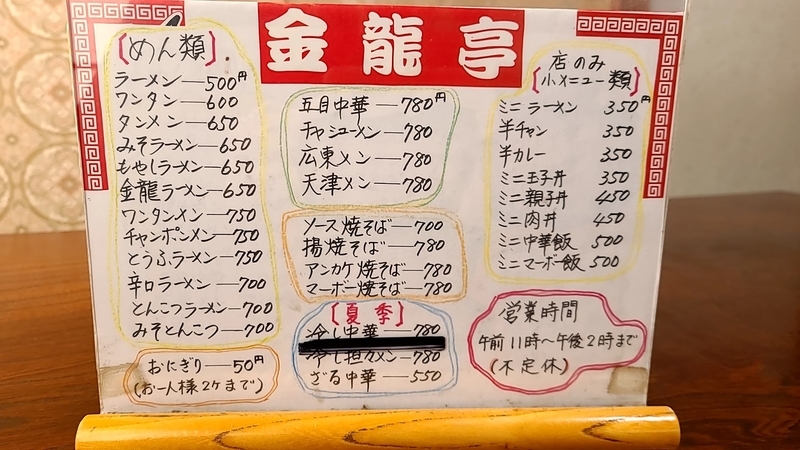 金龍亭
[めん類]
ラーメン―500円
ワンタン―600
タンメン―650
みそラーメン―650
もやしラーメン―650
金龍ラーメン―650
ワンタンメン―750
チャンポンメン―750
とうふラーメン―750
辛口ラーメン―700
とんこつラーメン―700
みそとんこつ―700
おにぎり―50円
(お一人様2ケまで)
五目中華―780円
チャシューメン―780
広東メン―780
天津メン―780
ソース焼そば―700
揚焼そば―780
アンカケ焼そば―780
マーボー焼そば―780
[夏季]
冷し中華―780
冷し担々メン―780
ざる中華―550
店のみ
[小メニュー類]
ミニラーメン 350円
半チャン 350
半カレー 350
ミニ玉子丼 350
ミニ親子丼 450
ミニ肉丼 450
ミニ中華飯 500
ミニマーボー飯 500
営業時間
午前11時~午後2時まで
(不定休)